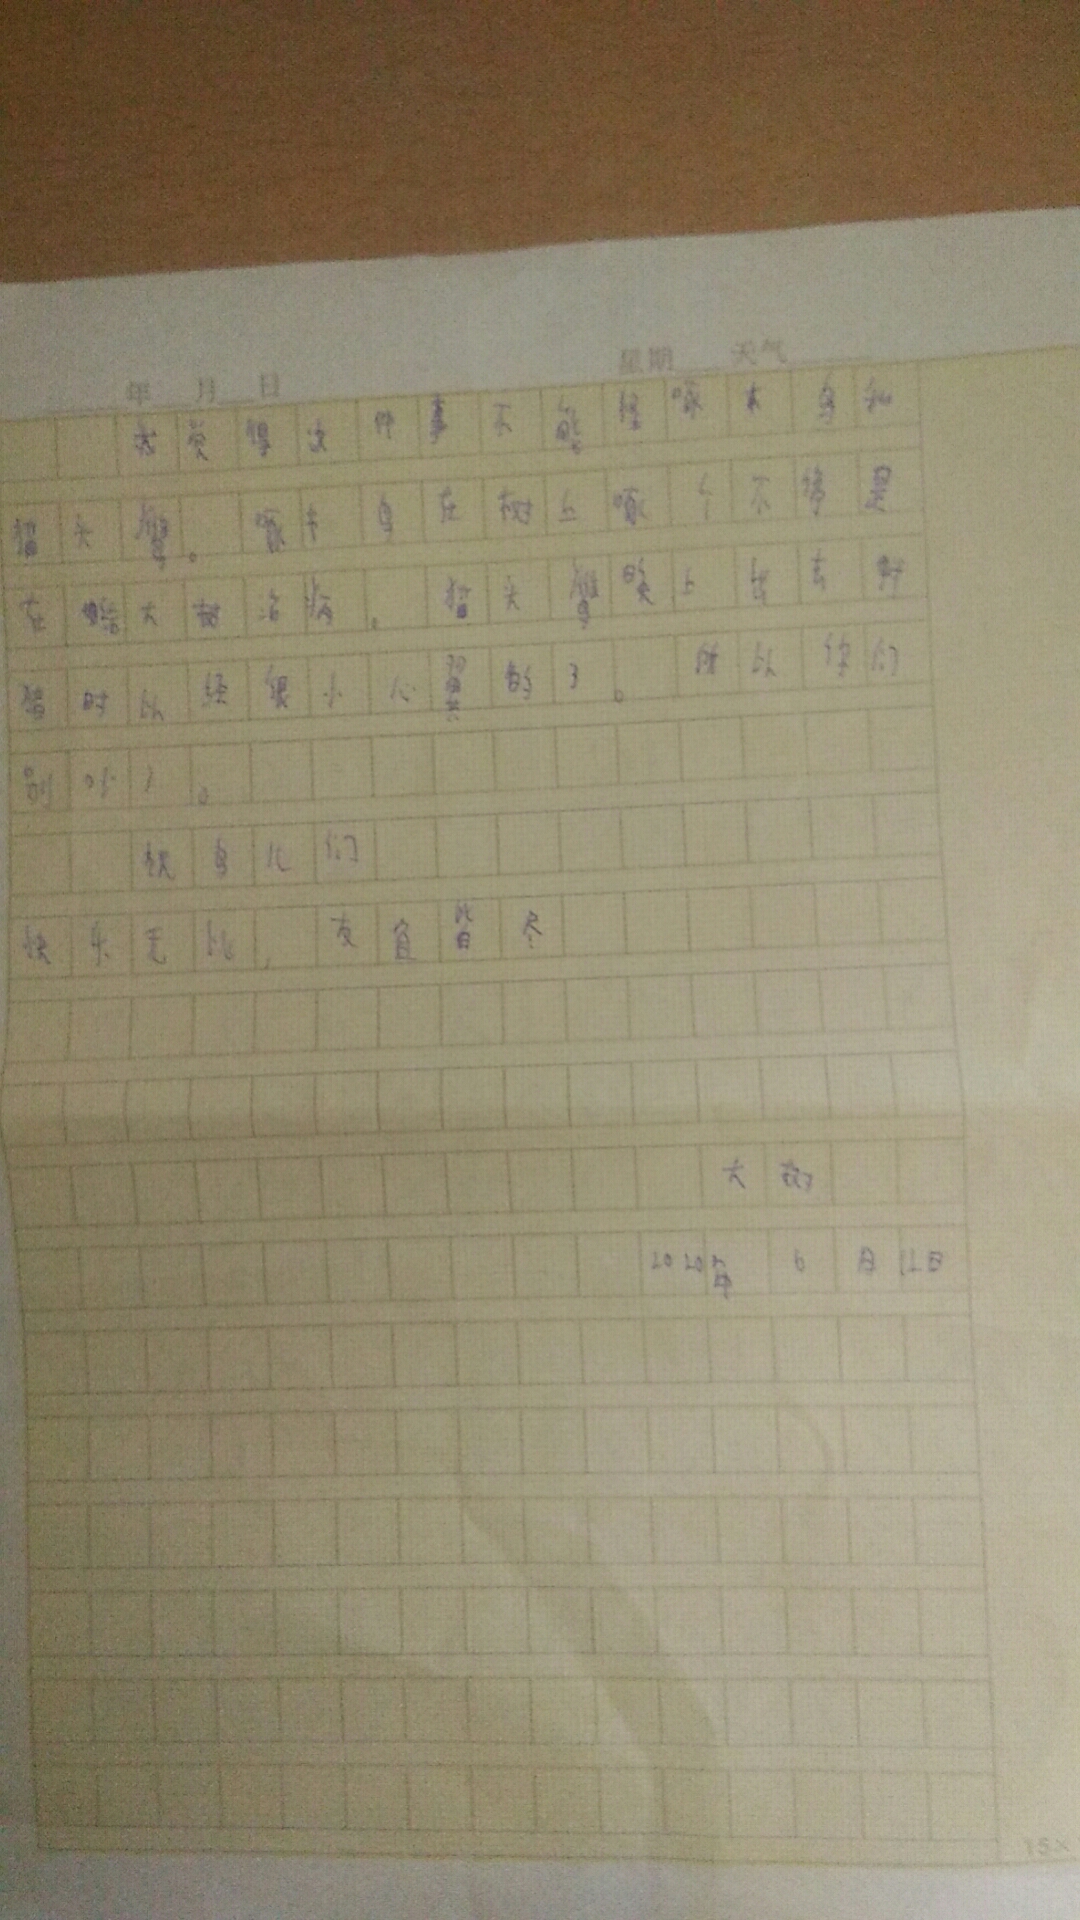 年 月 日 星期 天气
我觉得这件事不能怪啄木鸟和
猫头鹰。啄木鸟在树上啄个不停是
在给大树治病。猫头鹰晚上出去
时以经很小心翼的了。所以你们
别吵了。
祝鸟儿们
快乐无比,友宜皆尽
大树
2020年 6 月12日
15×